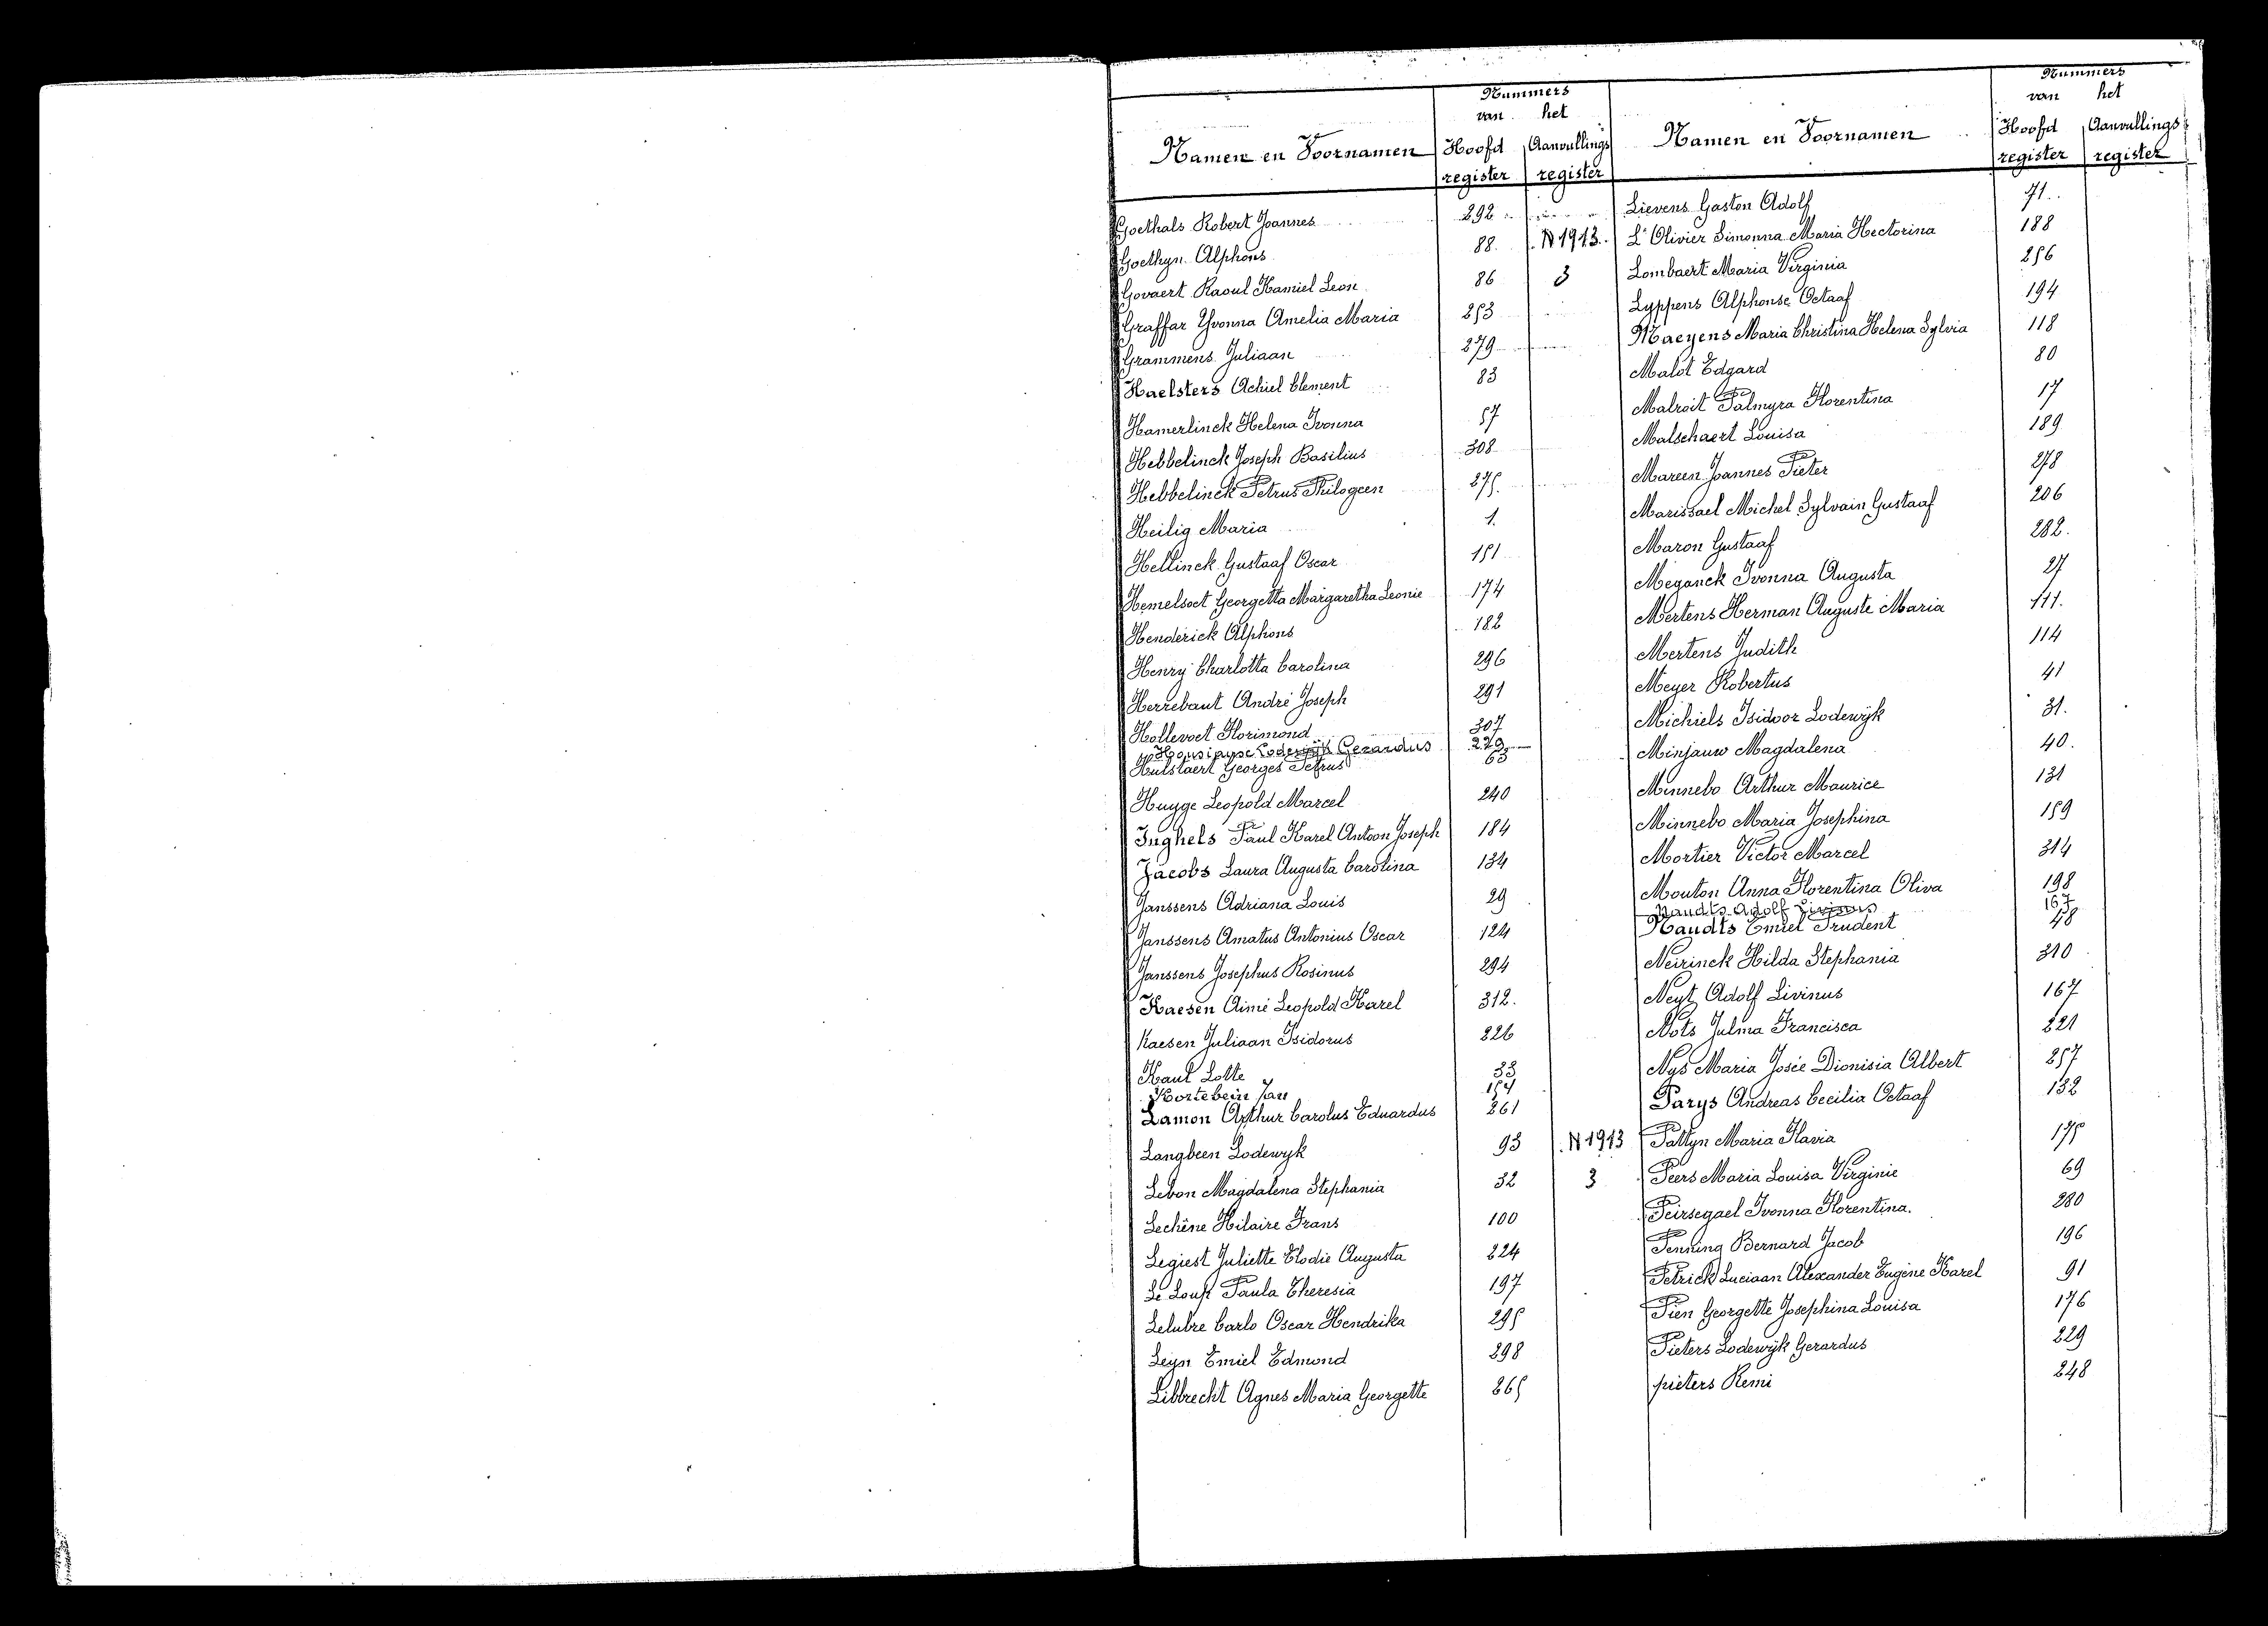 Nummers
van het
Namen en Voornamen Hoofd register Aanvullings register
Goethals Robert Joannes 292
Goethyn Alphons 88 N 1913
Govaert Raoul Kamiel Leon 86 3
Graffar Yvonna Amelia Maria 253
Grammens Juliaan 279
Haelsters Achiel Clement 83
Hamerlinck Helena Ivonna 57
Hebbelinck Joseph Basilius 308
Hebbelinck Petrus Philogeen 275
Heilig Maria 1
Hellinck Gustaaf Oscar 151
Hemelsoet Georgetta Margaretha Leonie 174
Henderick Alphons 182
Henry Charlotta Carolina 296
Herrebaut André Joseph 291
Hollevoet Florimond 307
Lodewijk Gerardus 229
Hulstaert Georges Petrus 63
Huyge Leopold Marcel 240
Inghels Paul Karel Antoon Joseph 184
Jacobs Laura Augusta Carolina 134
Janssens Adriana Louis 29
Janssens Amatus Antonius Oscar 124
Janssens Josephus Rosinus 294
Kaesen Aimé Leopold Karel 312.
Kaesen Juliaan Isidorus 226
Kaul Lotte 33
Kortebein Jan 154
Lamon Arthur Carolus Eduardus 261
Langbeen Lodewyk 93 N 1913
Lebon Magdalena Stephania 32 3
Lechêne Hilaire Frans 100
Legiest Juliette Elodie Augusta 224
Le Loup Paula Theresia 197
Lelubre Carlo Oscar Hendrika 295
Leyn Emiel Edmond 298
Libbrecht Agnes Maria Georgette 265
Nummers
van het
Namen en Voornamen Hoofd register Aanvullings register
Lievens Gaston Adolf 71
L'Olivier Simonna Maria Hectorina 188
Lombaert Maria Virginia 256
Lyppens Alphonse Octaaf 194
Maeyens Maria Christina Helena Sylvia 118
Malot Edgard 80
Malroit Palmyra Florentina 17
Malschaert Louisa 189
Mareen Joannes Pieter 278
Marissael Michel Sylvain Gustaaf 206
Maron Gustaaf 282.
Meganck Ivonna Augusta 27
Mertens Herman Auguste Maria 111.
Mertens Judith 114
Meyer Robertus 41
Michiels Isidoor Lodewijk 31.
Minjauw Magdalena 40.
Minnebo Arthur Maurice 131
Minnebo Maria Josephina 159
Mortier Victor Marcel 314
Mouton Anna Florentina Oliva 198
Naudts Adolf Livinus 167
Naudts Emiel Prudent 48
Neirinck Hilda Stephania 310
Neyt Adolf Livinus 167
Nots Julma Francisca 221
Nys Maria Josée Dionisia Albert 257
Parys Andreas Cecilia Octaaf 132
Pattyn Maria Flavia 175
Peers Maria Louisa Virginie 69
Peirsegael Ivonna Florentina. 280
Penning Bernard Jacob 196
Petrick Luciaan Alexander Eugène Karel 91
Pien Georgette Josephina Louisa 176
Pieters Lodewijk Gerardus 229
pieters Remi 248